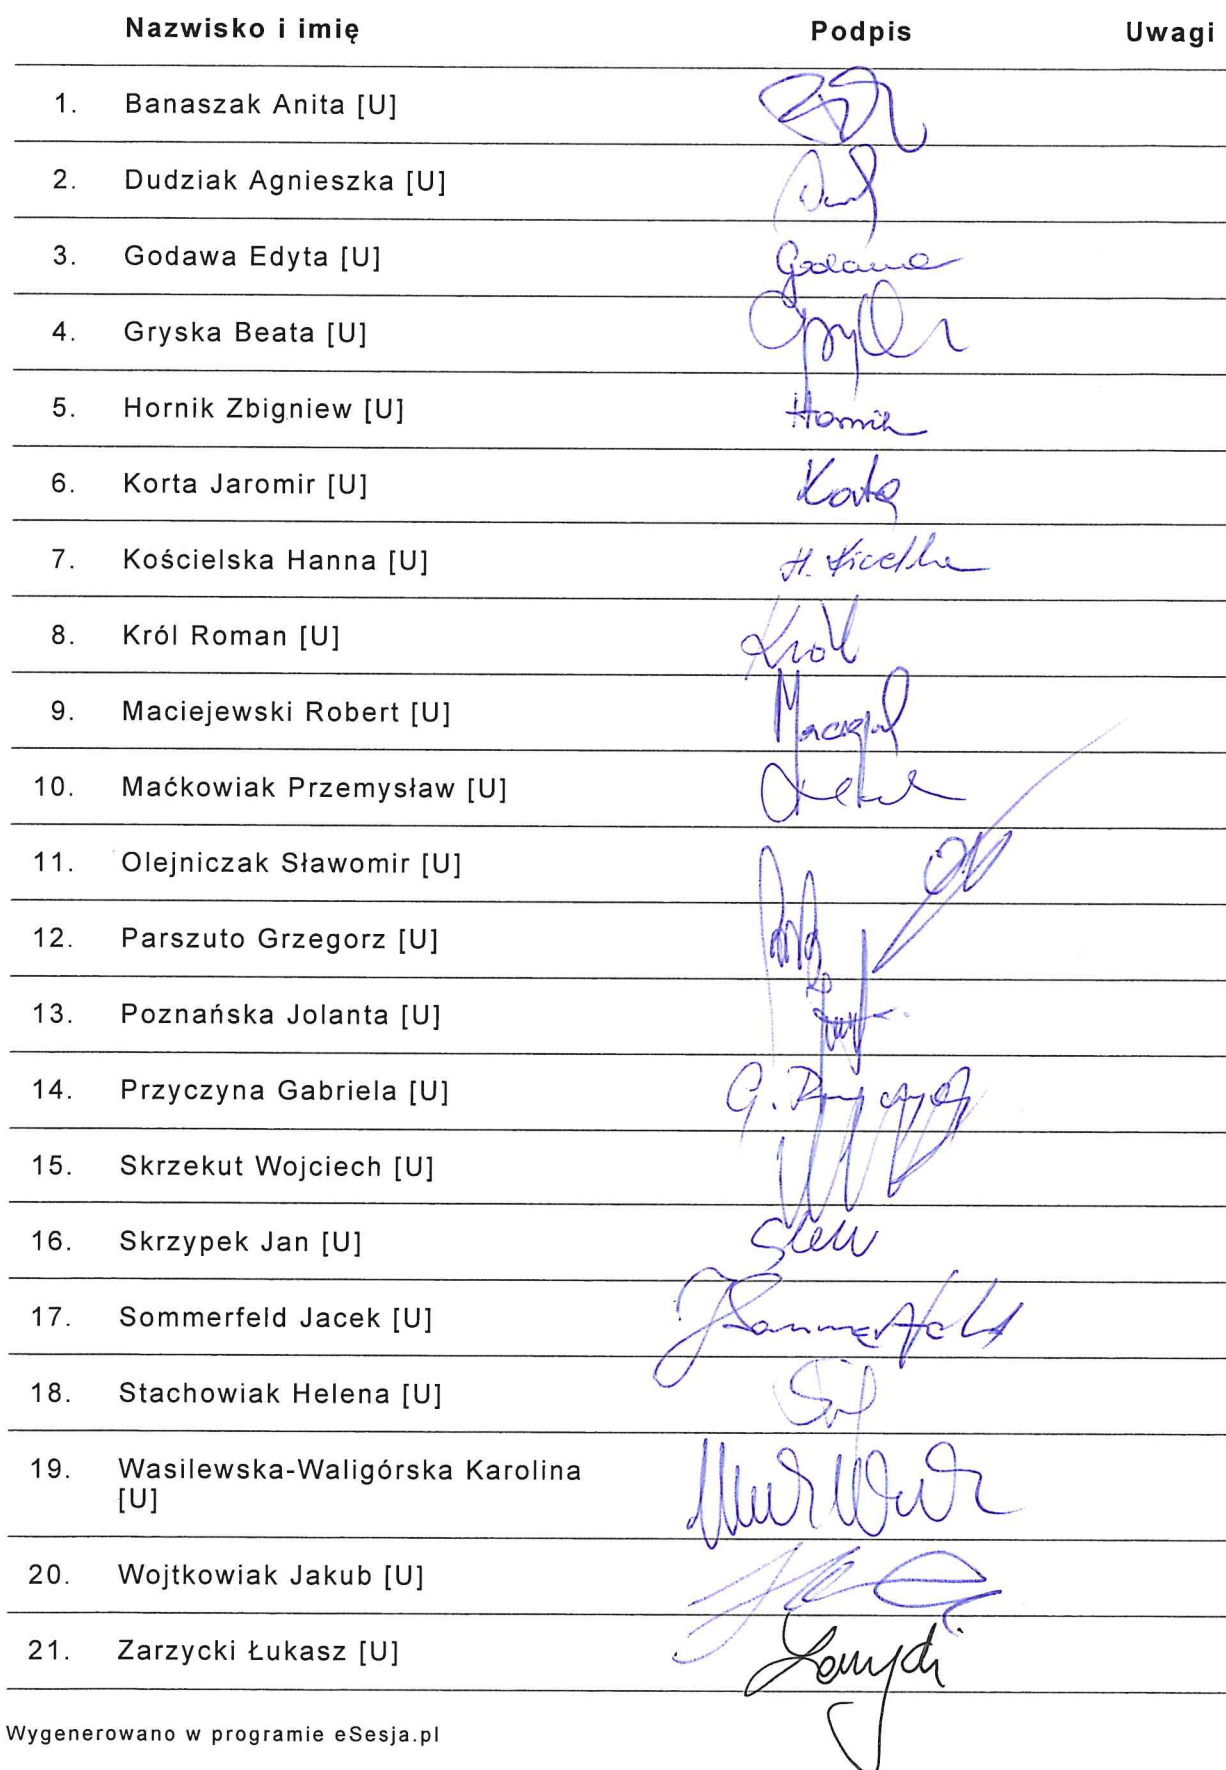 Nazwisko i imię Podpis Uwagi
1. Banaszak Anita [U]
2. Dudziak Agnieszka [U]
3. Godawa Edyta [U] Godawa
4. Gryska Beata [U]
5. Hornik Zbigniew [U] Hornik
6. Korta Jaromir [U] Korta
7. Kościelska Hanna [U] H.
8. Król Roman [U] Król
9. Maciejewski Robert [U]
10. Maćkowiak Przemysław [U]
11. Olejniczak Sławomir [U]
12. Parszuto Grzegorz [U]
13. Poznańska Jolanta [U]
14. Przyczyna Gabriela [U] G.
15. Skrzekut Wojciech [U]
16. Skrzypek Jan [U]
17. Sommerfeld Jacek [U] JSommerfeld
18. Stachowiak Helena [U]
19. Wasilewska-Waligórska Karolina
[U]
20. Wojtkowiak Jakub [U]
21. Zarzycki Łukasz [U]
Wygenerowano w programie eSesja.pl